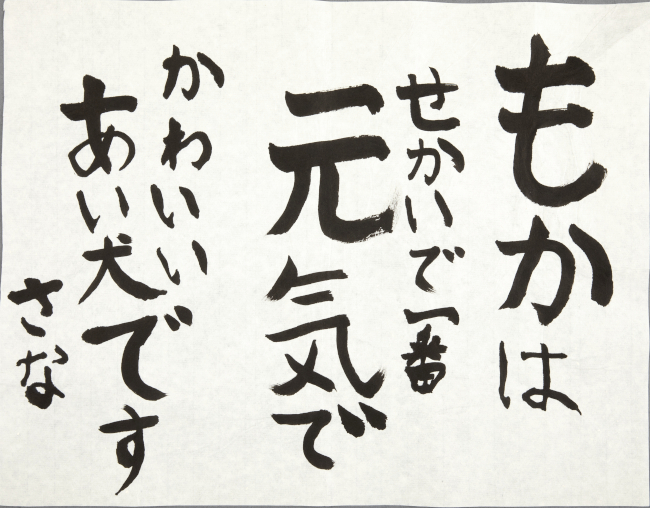 もかは
せかいで一番
元気で
かわいい
あい犬です
さな